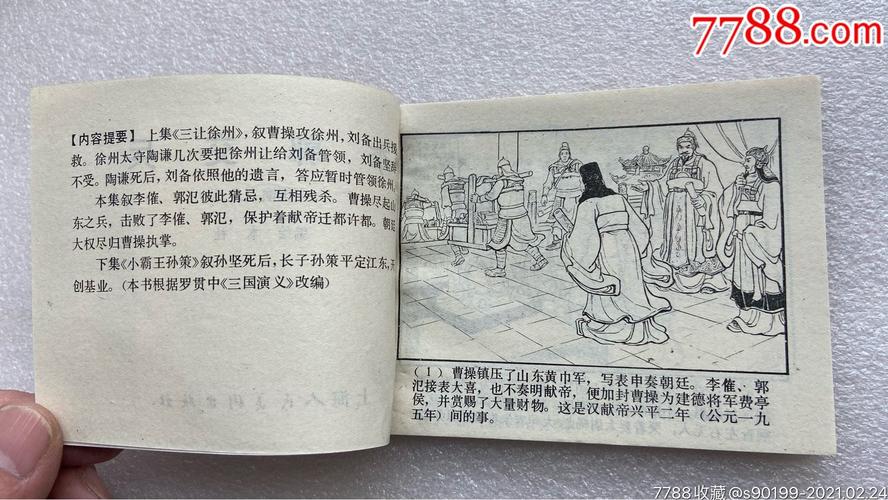 7788.com
【内容提要】 上集《三让徐州》，叙曹操攻徐州，刘备出兵援
救。徐州太守陶谦几次要把徐州让给刘备管领，刘备坚辞
不受。陶谦死后，刘备依照他的遗言，答应暂时管领徐州。
本集叙李傕、郭汜彼此猜忌，互相残杀。曹操尽起山
东之兵，击败了李傕、郭汜，保护着献帝迁都许都。朝廷
大权尽归曹操执掌。
下集《小霸王孙策》叙孙坚死后，长子孙策平定江东，开
创基业。（本书根据罗贯中《三国演义》改编）
（1）曹操镇压了山东黄巾军，写表申奏朝廷。李傕、郭
汜接表大喜，也不奏明献帝，便加封曹操为建德将军费亭
侯，并赏赐了大量财物。这是汉献帝兴平二年（公元一九
五年）间的事。
7788收藏@s90199-2021.02.24